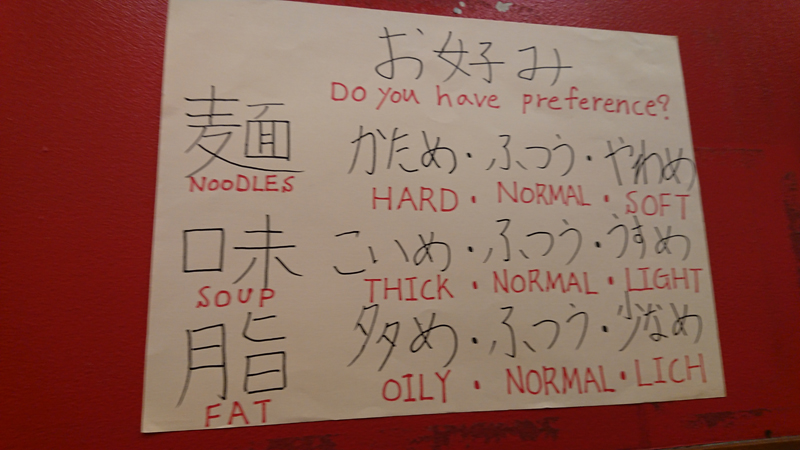 お好み
Do you have preference?
麺 かため・ふつう・やわめ
NOODLES HARD・NORMAL・SOFT
味 こいめ・ふつう・うすめ
SOUP THICK・NORMAL・LIGHT
脂 多め・ふつう・少なめ
FAT OILY・NORMAL・LICH